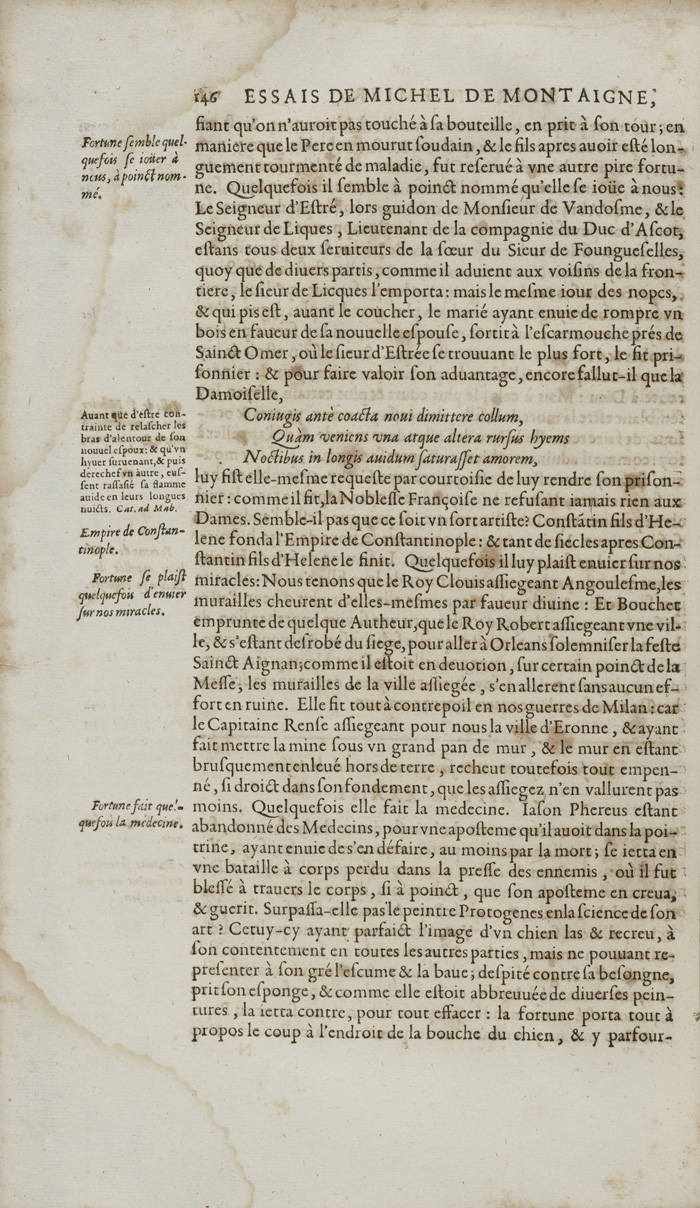 146 ESSAIS DE MICHEL DE MONTAIGNE,
fiant qu'on n'auroit pas touché à sa bouteille, en prit à son tour; en
maniere que le Pere en mourut soudain, & le fils apres auoir esté lon-
guement tourmenté de maladie, fut reserué à vne autre pire fortu-
ne. Quelquefois il semble à poinct nommé qu'elle se ioüe à nous:
Le Seigneur d'Estré, lors guidon de Monsieur de Vandosme, & le
Seigneur de Liques, Lieutenant de la compagnie du Duc d'Ascot,
estans tous deux seruiteurs de la sœur du Sieur de Foungueselles,
quoy que de diuers partis, comme il aduient aux voisins de la fron-
tiere, le sieur de Licques l'emporta: mais le mesme iour des nopces,
& qui pis est, auant le coucher, le marié ayant enuie de rompre vn
bois en faueur de sa nouuelle espouse, sortit à l'escarmouche prés de
Sainct Omer, où le sieur d'Estrée se trouuant le plus fort, le fit pri-
sonnier: & pour faire valoir son aduantage, encore fallut-il que la
Damoiselle,
Coniugis antè coacta noui dimittere collum,
Quàm veniens vna atque altera rursus hyems
Noctibus in longis auidum saturasset amorem,
luy fist elle-mesme requeste par courtoisie de luy rendre son prison-
nier: comme il fit, la Noblesse Françoise ne refusant iamais rien aux
Dames. Semble-il pas que ce soit vn sort artiste? Constãtin fils d'He-
lene fonda l'Empire de Constantinople: & tant de siecles apres Con-
stantin fils d'Helene le finit. Quelquefois il luy plaist enuier sur nos
miracles: Nous tenons que le Roy Clouis assiegeant Angoulesme, les
murailles cheurent d'elles-mesmes par faueur diuine: Et Bouchet
emprunte de quelque Autheur, que le Roy Robert assiegeant vne vil-
le, & s'estant desrobé du siege, pour aller à Orleans solemniser la feste
Sainct Aignan; comme il estoit en deuotion, sur certain poinct de la
Messe, les murailles de la ville assiegée, s'en allerent sans aucun ef-
fort en ruine. Elle fit tout à contrepoil en nos guerres de Milan: car
le Capitaine Rense assiegeant pour nous la ville d'Eronne, & ayant
fait mettre la mine sous vn grand pan de mur, & le mur en estant
brusquement enleué hors de terre, recheut toutefois tout empen-
né, si droict dans son fondement, que les assiegez n'en vallurent pas
moins. Quelquefois elle fait la medecine. Iason Phereus estant
abandonné des Medecins, pour vne aposteme qu'il auoit dans la poi-
trine, ayant enuie de s'en défaire, au moins par la mort; se ietta en
vne bataille à corps perdu dans la presse des ennemis, où il fut
blessé à trauers le corps, si à poinct, que son aposteme en creua,
& guerit. Surpassa-elle pas le peintre Protogenes en la science de son
art? Cetuy-cy ayant parfaict l'image d'vn chien las & recreu, à
son contentement en toutes les autres parties, mais ne pouuant re-
presenter à son gré l'escume & la baue; despité contre sa besongne,
prit son esponge, & comme elle estoit abbreuuée de diuerses pein-
tures, la ietta contre, pour tout effacer: la fortune porta tout à
propos le coup à l'endroit de la bouche du chien, & y parfour-
Fortune semble quel-
quefois se ioüer à
nous, à poinct nom-
mé.
Auant que d'estre con-
trainte de relascher les
bras d'alentour de son
nouuel espoux: & qu'vn
hyuer suruenant, & puis
derechef vn autre, eus-
sent rassasié sa flamme
auide en leurs longues
nuicts. Cat. ad Mab.
Empire de Constan-
tinople.
Fortune se plaist
quelquefois d'enuier
sur nos miracles.
Fortune fait quel-
quefois la medecine.